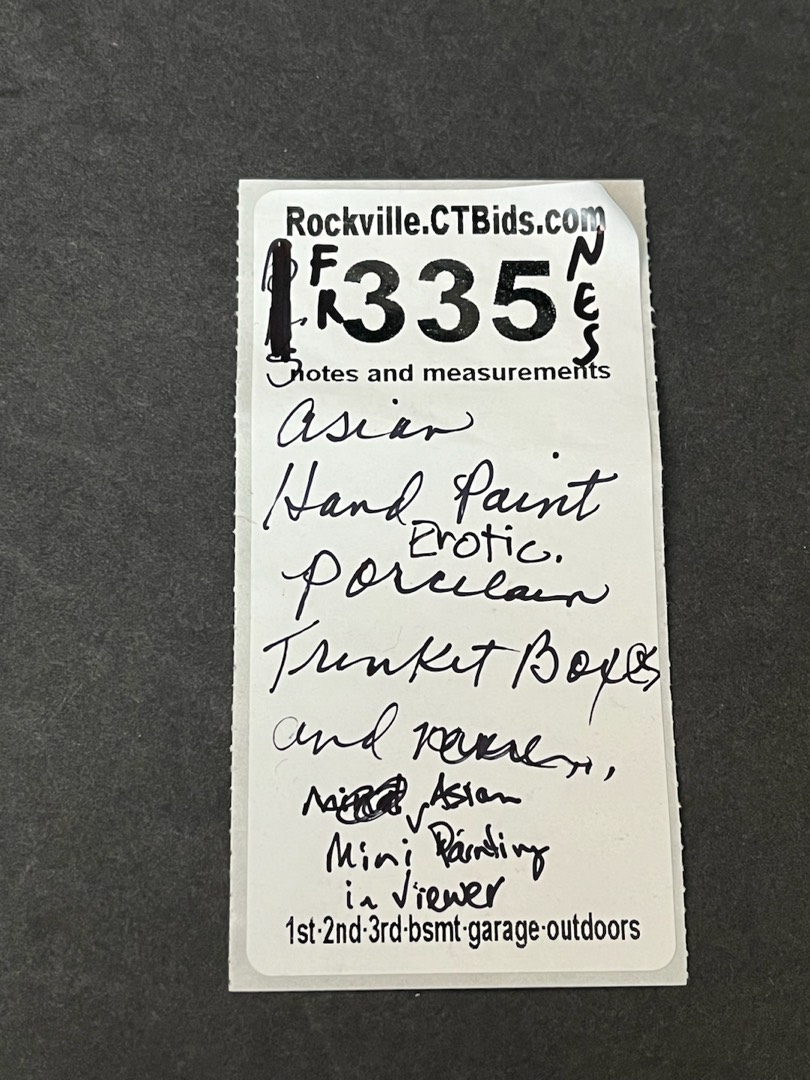 Rockville.CTBids.com
FR 335 NES
notes and measurements
Asian
Hand Paint
Erotic.
Porcelain
Trinket Boxes
and
Asian
Mini Painting
in Viewer
1st·2nd·3rd·bsmt·garage·outdoors